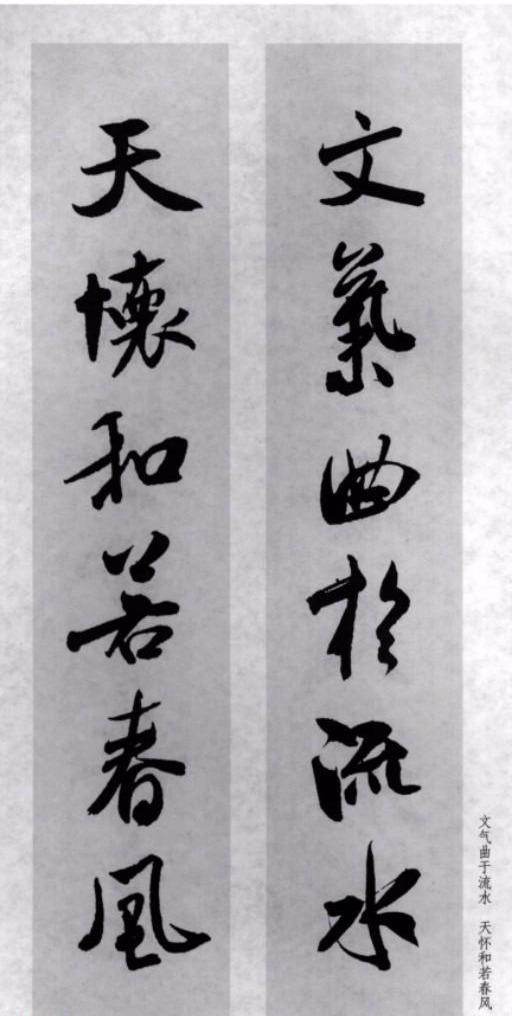 文氣曲於流水
天懷和若春風
文气曲于流水 天怀和若春风